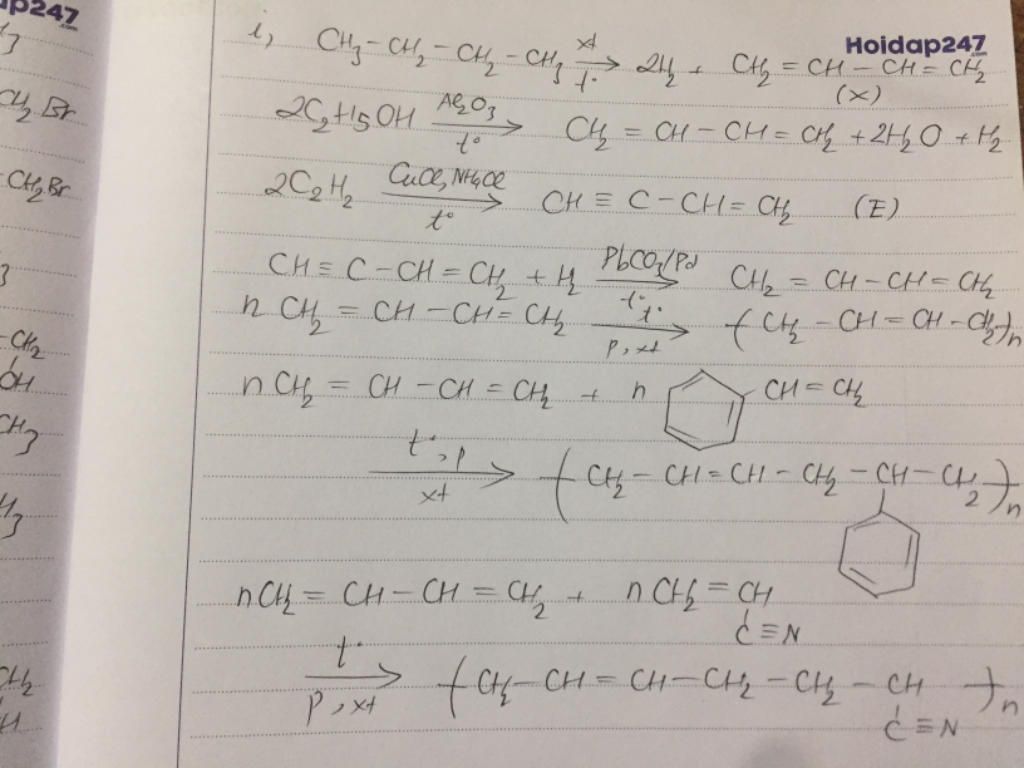 ap247
.com
Hoidap247
.com
CH2Br
-CH2Br
3
-CH2
OH
CH3
H3
CH2
H
i, CH3-CH2-CH2-CH3 xt→t° 2H2 + CH2=CH-CH=CH2
(X)
2C2H5OH Al2O3→t° CH2=CH-CH=CH2+2H2O+H2
2C2H2 CuCl,NH4Cl→t° CH≡C-CH=CH2 (E)
CH≡C-CH=CH2+H2 PbCO3/Pd→t° CH2=CH-CH=CH2
nCH2=CH-CH=CH2 t°→p,xt (CH2-CH=CH-CH2)n
nCH2=CH-CH=CH2 + n CH=CH2
t°,p→xt (CH2-CH=CH-CH2-CH-CH2)n
nCH2=CH-CH=CH2 + nCH2=CH
C≡N
t°→p,xt (CH2-CH=CH-CH2-CH2-CH)n
C≡N